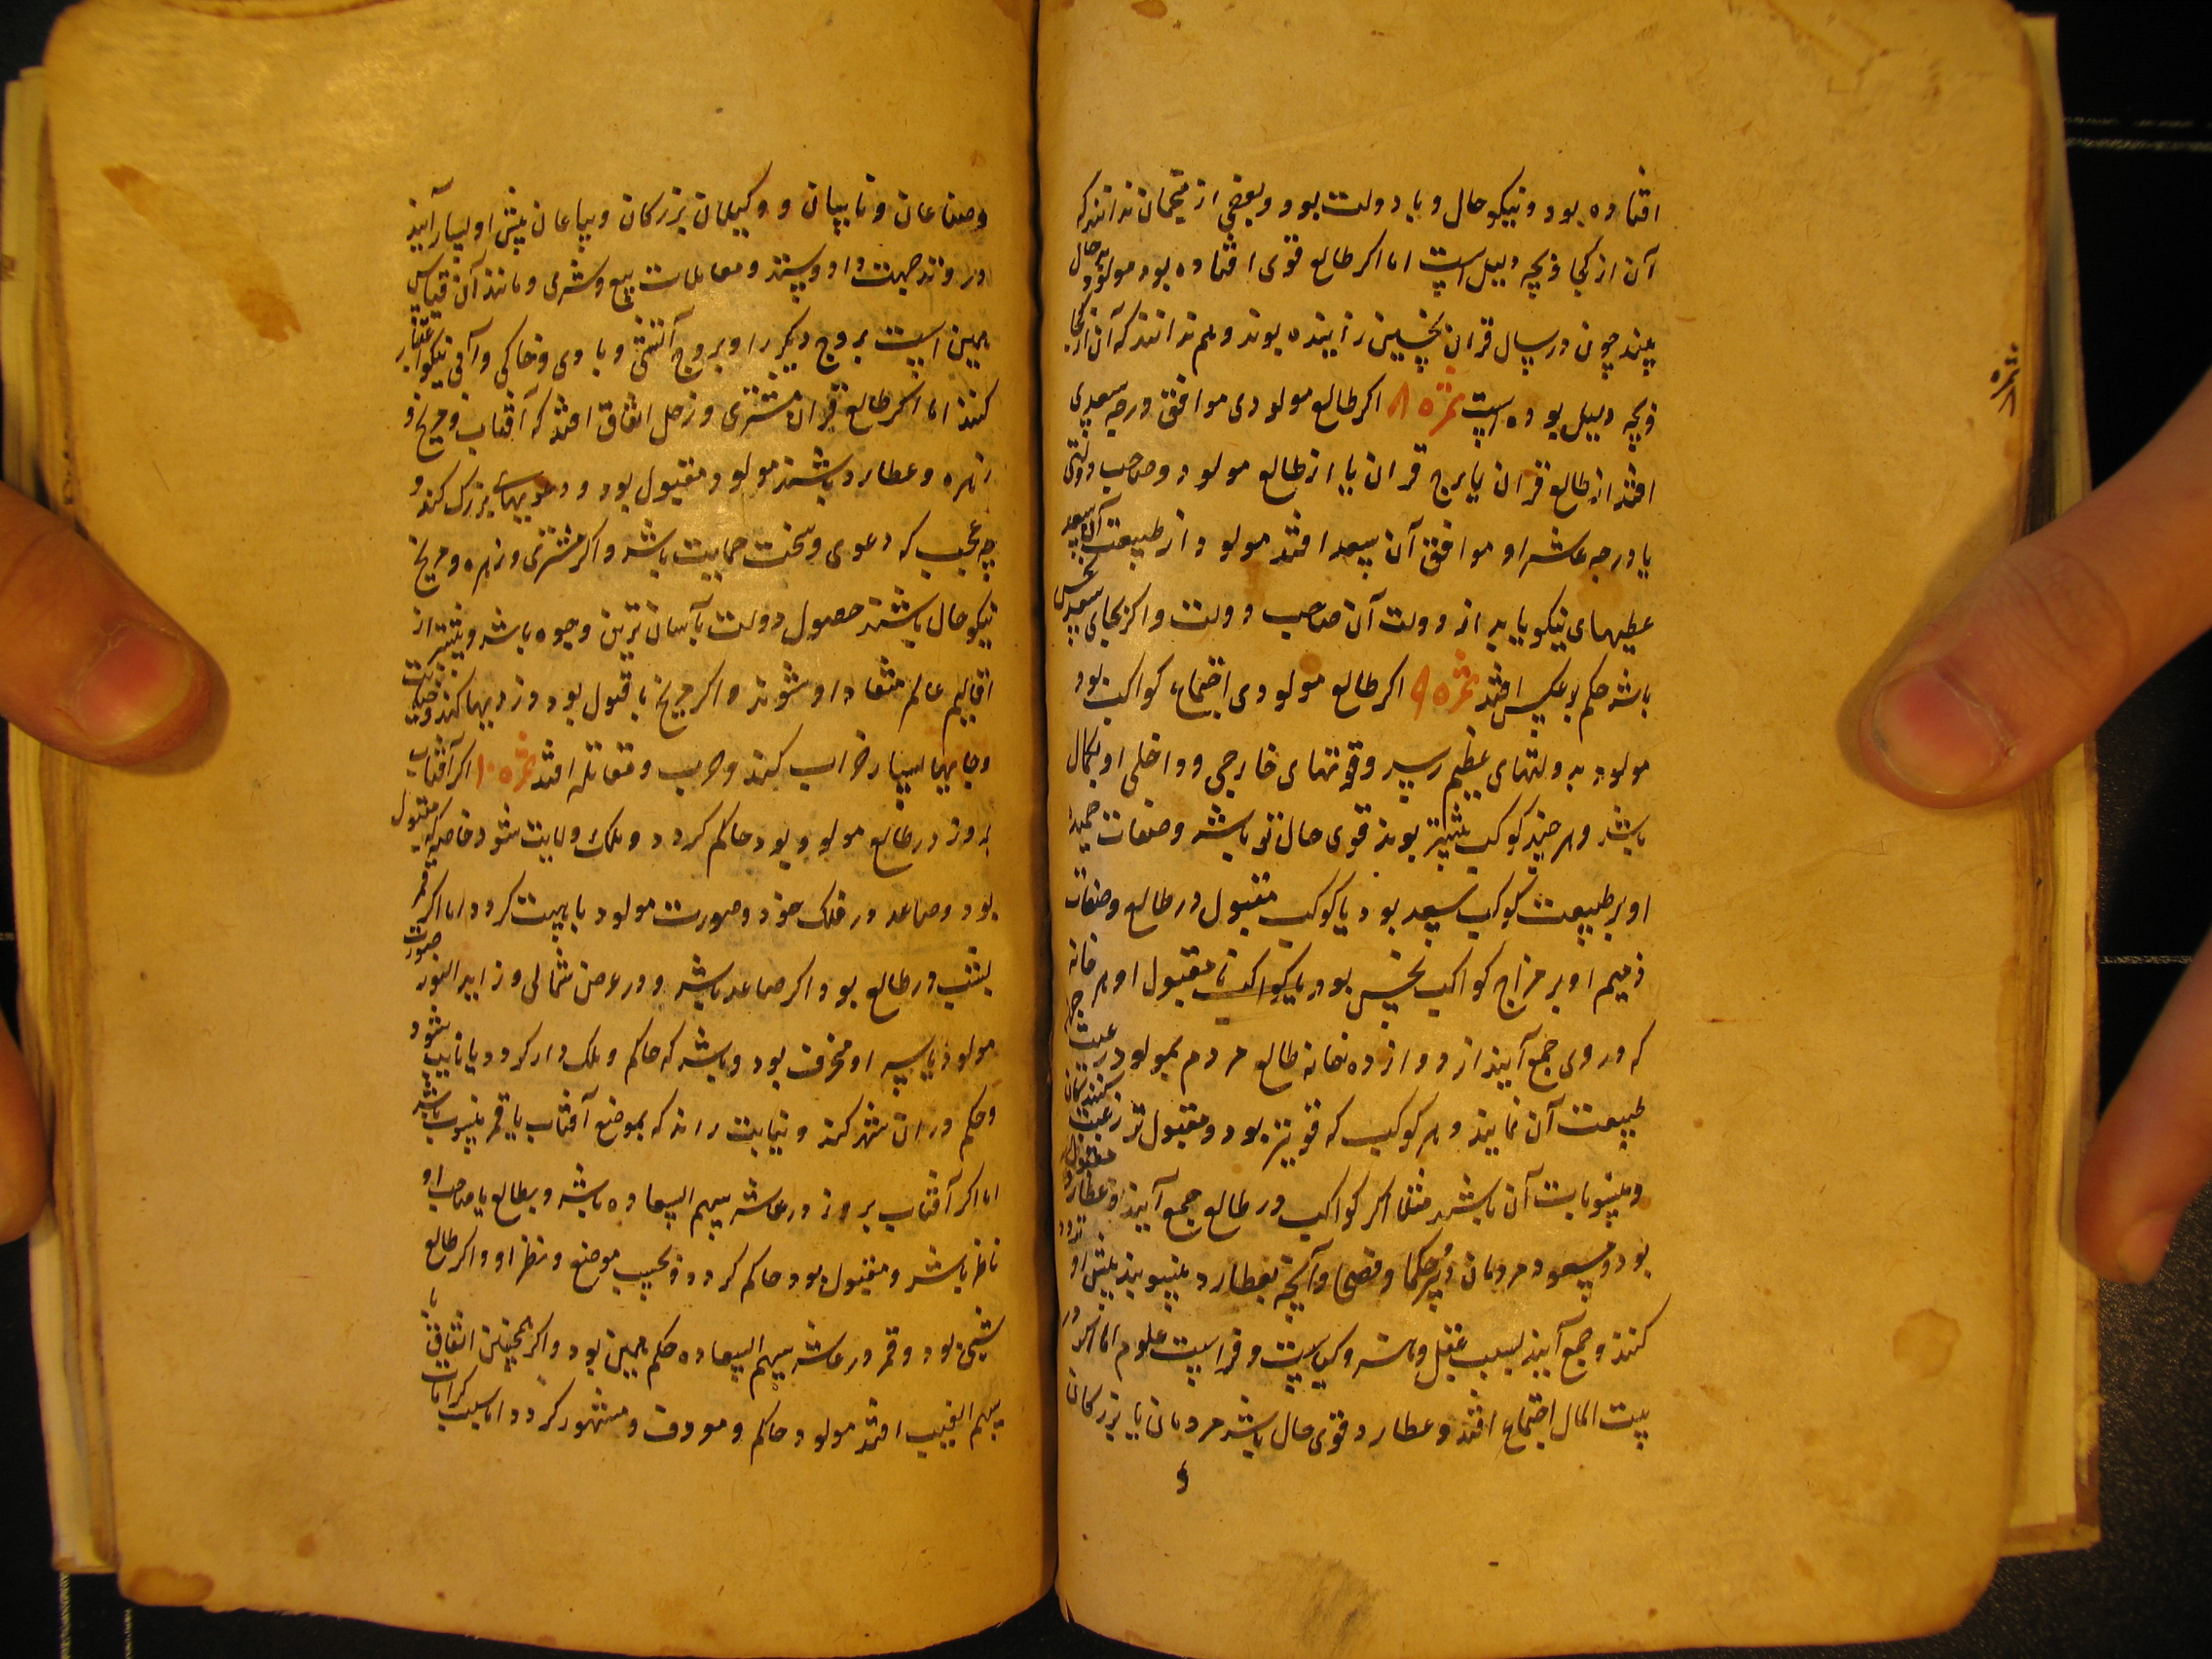 افتاده بود و نیکو حال و با دولت بود و بعضی از منجمان ندانند که
آن از کجا و بچه دلیل است اما اکر طالع قوی افتاده بود مولود حال
بیند چون در سال قران نحسین زاینده بوند و هم ندانند که آن از کجا
و بچه دلیل بوده است ثمره ۸ اکر طالع مولودی موافق درجه سعدی
افتد از طالع قران یا برج قران یا از طالع مولود و صاحب دولتی
یا درجه عاشر او موافق آن سعد افتد مولود از طبیعت آن سعد
عطیهای نیکو یابد از دولت آن صاحب دولت و اکر بجای سعد نحس
باشد حکم بر عکس افتد ثمره ۹ اکر طالع مولودی اجتماع کواکب بود
مولود بدولتهای عظیم رسد و قوتهای خارجی و داخلی او بکمال
باشد و هر چند کوکب بیشتر بوند قوی حال تر باشد و صفات حمیده
او بر طبیعت کوکب سعد بود یا کوکب مقبول در طالع و صفات
ذمیم او بر مزاج کواکب نحس بود یا کواکب نا مقبول او هر خانه
که در وی جمع آیند از دوازده خانه طالع مردم بمولود رغبت جهت
طبیعت آن نمایند و هر کوکب که قویتر بود و مقبول تر رغبت کنندکان
و منسوبات آن باشند مثلا اکر کواکب در طالع جمع آیند و عطارد مقبول
بود و مسعود مردمان دبیر و حکما و فصحا و آنچه بعطارد منسوبند پیش او تردد
کنند و جمع آیند بسبب عقل و کیاست و فراست علوم اما اکر در
بیت المال اجتماع افتد و عطارد قوی حال باشد مردمان یا بزرکان
و صناعان و نایبان و وکیلان بزرکان و بیاعان پیش او بسیار آیند
و روند جهت داد و ستد و معاملات بیع و شری و مانند آن قیاس
همین است بروج دیکر را و بروج آتشی و بادی و خاکی و آبی نیکو اعتبار
کنند اما اکر طالع قران مشتری و زحل اتفاق افتد که آفتاب و مریخ و
زهره و عطارد باشند مولود مقبول بود و دعویهای بزرک کند و
چه عجب که دعوی و سخت حمایت باشد و اکر مشتری و زهره و مریخ
نیکو حال باشند حصول دولت بآسان ترین وجوه باشد و بیشتر از
اقالیم عالم منقاد او شوند و اکر مریخ با قبول بود
و جایها بسیار خراب کند و حرب و مقاتله افتد ثمره ۱۰ اکر آفتاب
بروز در طالع مولود بود حاکم کردد و ملک ولایت شود خاصه که مقبول
بود و صاعد در فلک خود و صورت مولود با هیبت کردد اما اکر قمر
بشب در طالع بود اکر صاعد باشد و در عرض شمالی و زاید النور صورت
مولود او محرف بود و باشد که حاکم و ملک دار کردد یا نایب شود
و حکم در ان شهر کند و نیابت راند که بموضع آفتاب یا قمر منسوب باشد
اما اکر آفتاب بروز در عاشر سهم السعاده باشد و بطالع یا صاحب او
ناظر باشد و مقبول بود حاکم کردد و بحسب موضع و نظر او و اکر طالع
شبی بود و قمر در عاشر سهم السعاده حکم همین بود و اکر همچنین اتفاق با
سهم الغیب افتد مولود حاکم و معروف و مشهور کردد اما بسبب کرامات